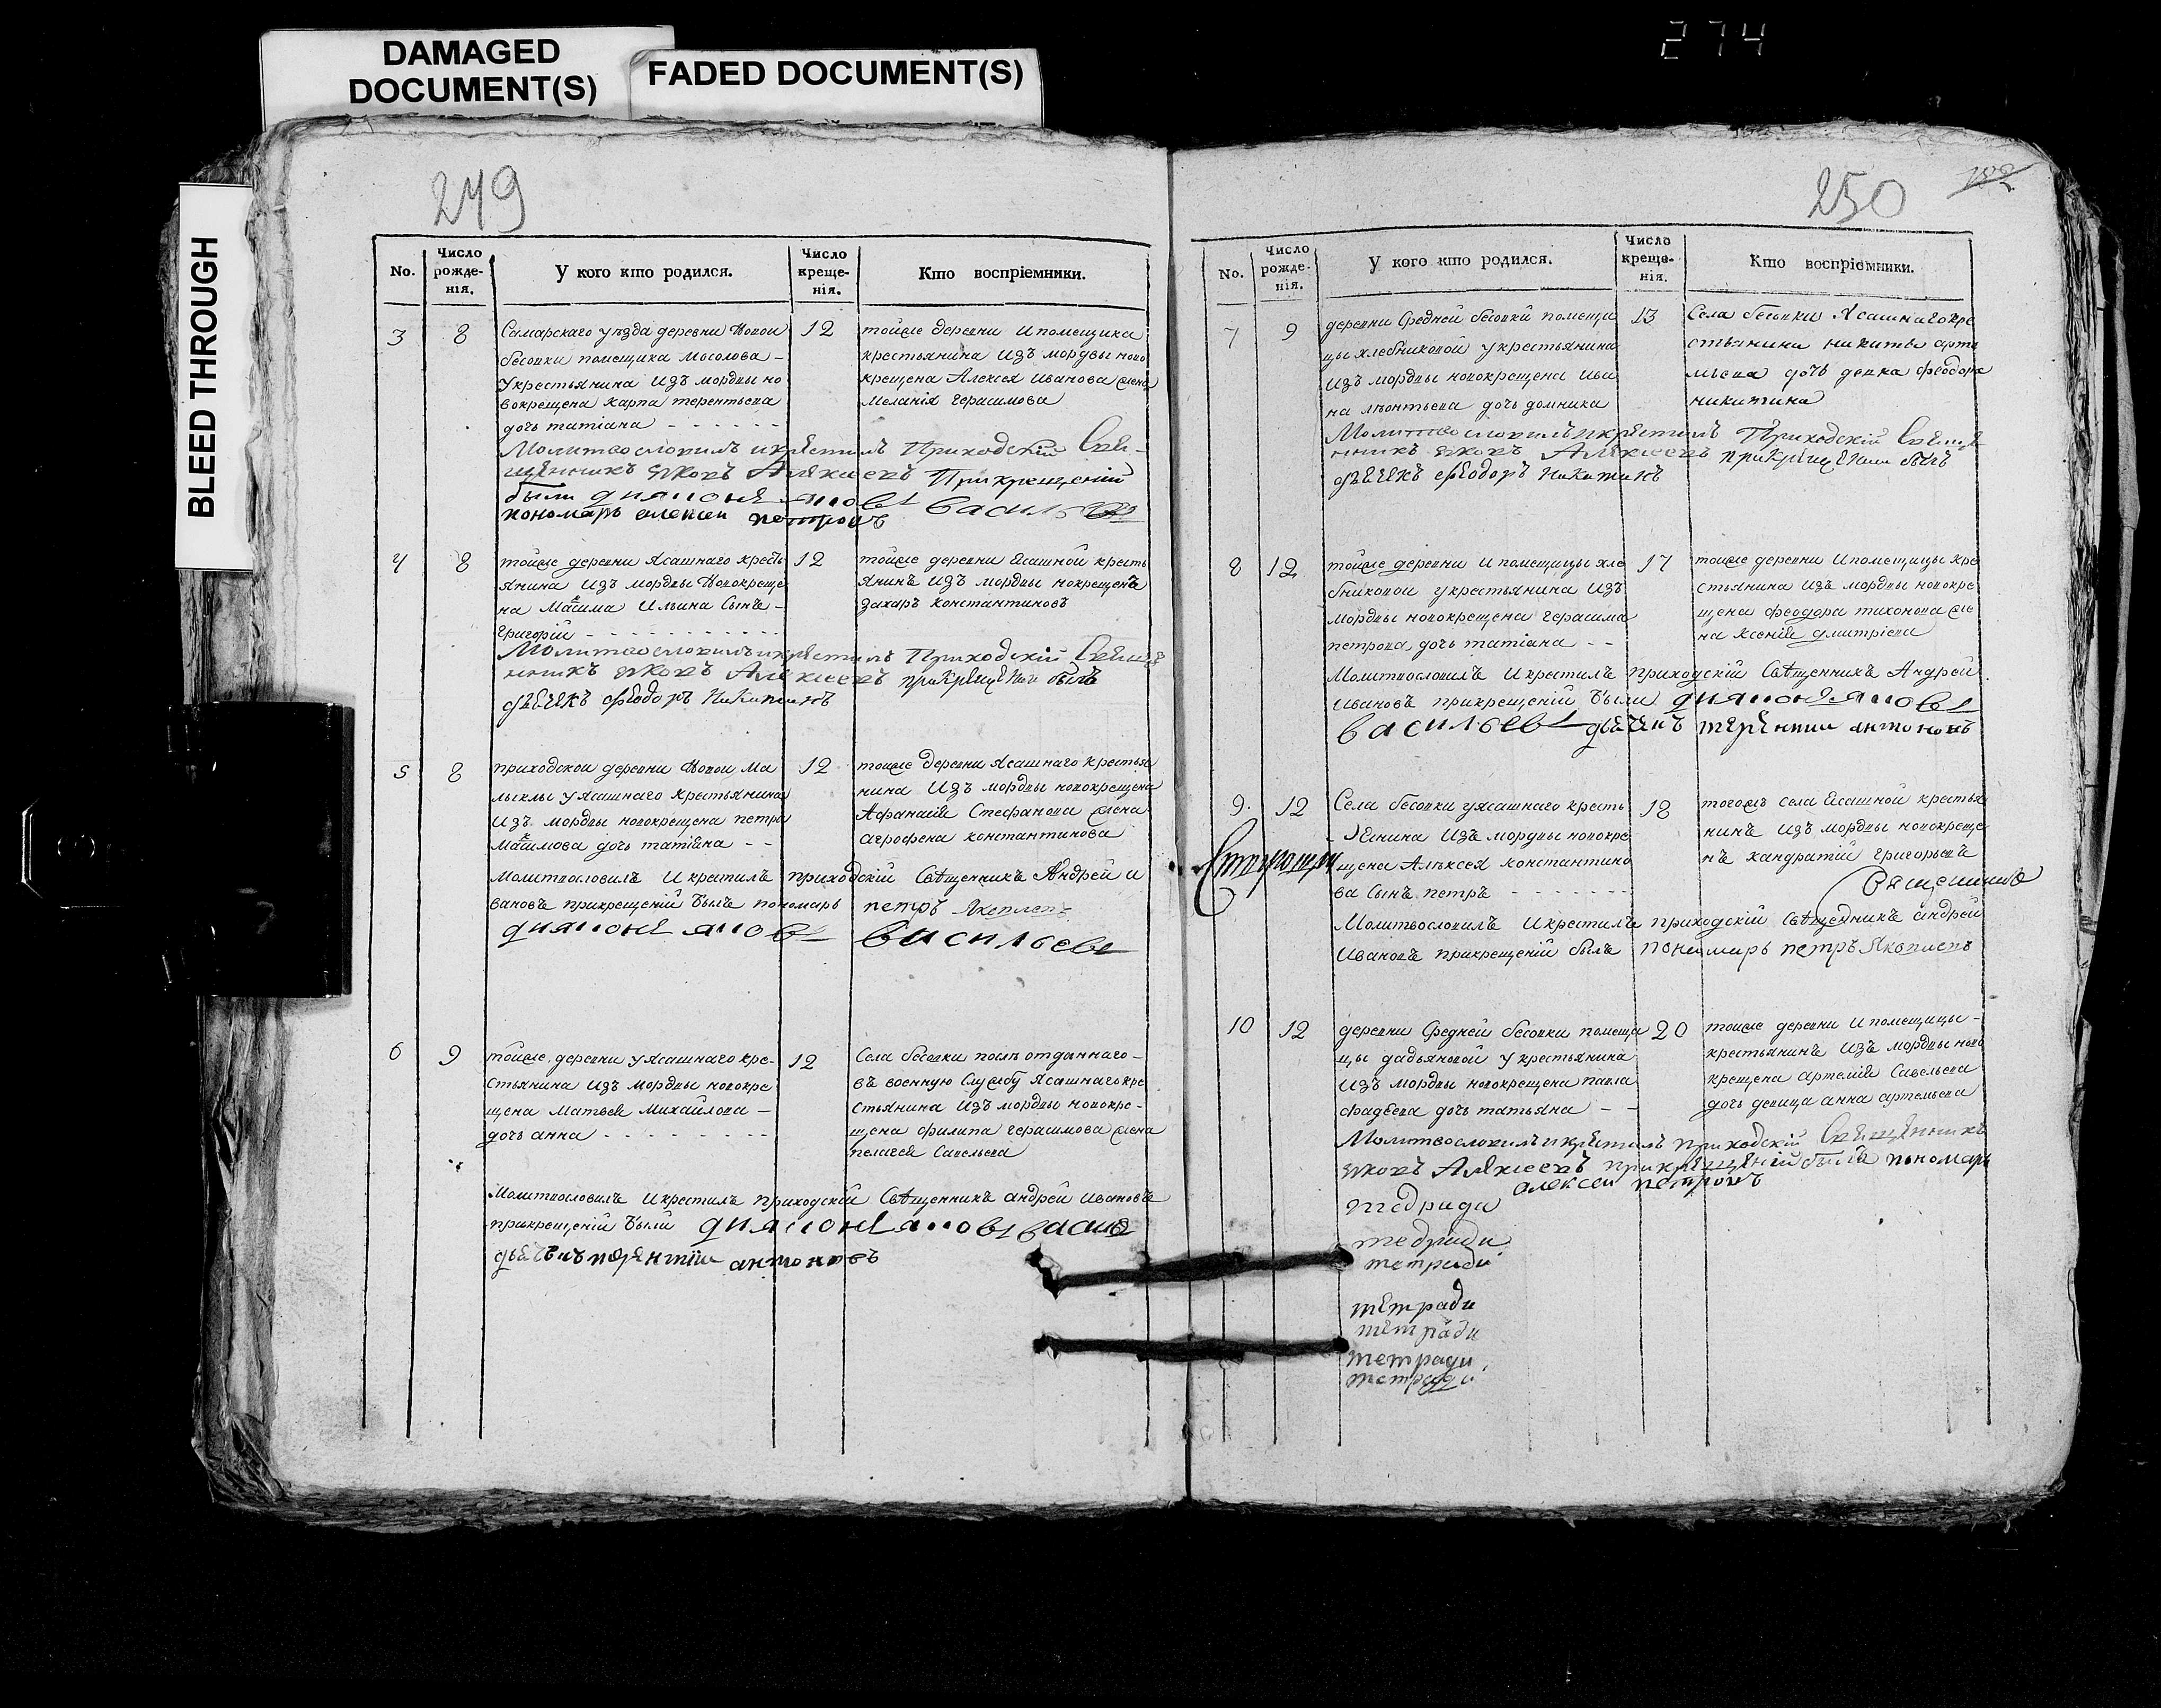 274
DAMAGED
DOCUMENT(S)
FADED DOCUMENT(S)
BLEED THROUGH
249
No.
Число
рожде-
нія.
У кого кто родился.
Число
креще-
нія.
Кто воспріемники.
3
8
Самарскаго уезда деревни Новой
бесовки помещика Мосолова –
укрестьянина изъ мордвы но
вокрещена карпа терентьева
дочь татіана
12
тойже деревни и помещика
крестьянина изъ мордвы ново
крещена Алексея Иванова жена
Меланія герасимова
Молитвословилъ икрестилъ Приходскій Свя-
щенникъ яковъ Алексеевъ Прикрещеніи
были диаконъ яковъ
пономарь алексеи петровъ
4
8
тойже деревни Ясашнаго кресть
янина изъ мордвы Новокреще
на Максима Ильина Сынъ –
григорій
12
тойже деревни Ясашной кресть
янинъ изъ мордвы нокрещенъ
захаръ константиновъ
Молитвословилъ икрестилъ Приходскій
яковъ Алексеевъ прикрещеніи былъ
дьячекъ феодоръ Никитинъ
5
8
приходской деревни Новой Ма
лыклы уясашнаго крестьянина
изъ мордвы новокрещена петра
Максимова дочь татіяна – –
12
тойже деревни ясашнаго крестья
нина изъ мордвы новокрещена
Афанасія Стефанова жена
агрофена константинова
молитвословилъ икрестилъ приходскій Священникъ Андрей и
вановъ прикрещеній былъ пономарь петръ
васильевъ
6
9
тойже деревни уясашнаго кре-
стьянина изъ мордвы новокре
щена Матвея Михайлова –
дочь анна
12
Села бесовки послѣ отданнаго –
въ военную Службу ясашнаго кре
стьянина изъ мордвы новокре-
щена филипа герасимова жена
пелагея Савельева
Молитвословилъ икрестилъ приходскій Священникъ андрей Ивановъ
прикрещеній были
антоновъ
250
No.
Число
рожде-
нія.
У кого кто родился.
Число
креще-
нія.
Кто воспріемники.
7
9
деревни Средней бесовки помещи
цы хлебниковой укрестьянина
изъ мордвы новокрещена ива
на леонтьева дочь домника
13
Села бесовки Ясашнаго кре
стьянина никиты арте
мьева дочь девка феодора
никитина
Молитвословилъ икрестилъ Приходскій
яковъ Алексеевъ прикрещеніи былъ
дьячекъ феодоръ Никитинъ
8
12
тойже деревни и помещицы хле
бниковой укрестьянина изъ
мордвы новокрещена герасима
петрова дочь татіана – –
17
тойже деревни и помещицы кре
стьянина изъ мордвы новокре
щена феодора тихонова же
на ксенія дмитріева
Молитвословилъ икрестилъ приходскій Священникъ Андрей
Ивановъ прикрещеній были
васильевъ дьячекъ терентии антоновъ
9.
12
Села бесовки уясашнаго кресть
янина изъ мордвы новокре
щена Алексея константино
ва Сынъ петръ
18
тогожъ села Ясашной крестья
нинъ изъ мордвы новокреще
нъ кандратій григорьевъ
Молитвословилъ икрестилъ приходскій Священникъ андрей
Ивановъ прикрещеній былъ пономарь петръ Яковлевъ
10
12
деревни Средней бесовки помещи
цы дадьяновой укрестьянина
изъ мордвы новокрещена павла
фадеева дочь татьяна – –
20
тойже деревни и помещицы –
крестьянинъ изъ мордвы ново
крещена артемія Савельева
дочь девица анна артемьева
Молитвословилъ икрестилъ приходскій Священникъ
яковъ Алексеевъ прикрещеніи былъ пономарь
алексеи петровъ
тедради
тедради
тетради
тетради
тетради
тетради
тетради